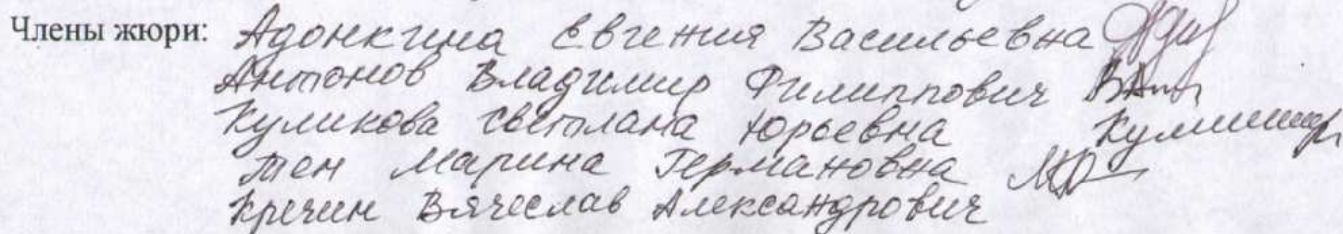 Члены жюри: Адонкина Евгения Васильевна
Антонов Владимир Филиппович
Куликова Светлана Юрьевна
Тен Марина Германовна
Кречин Вячеслав Александрович